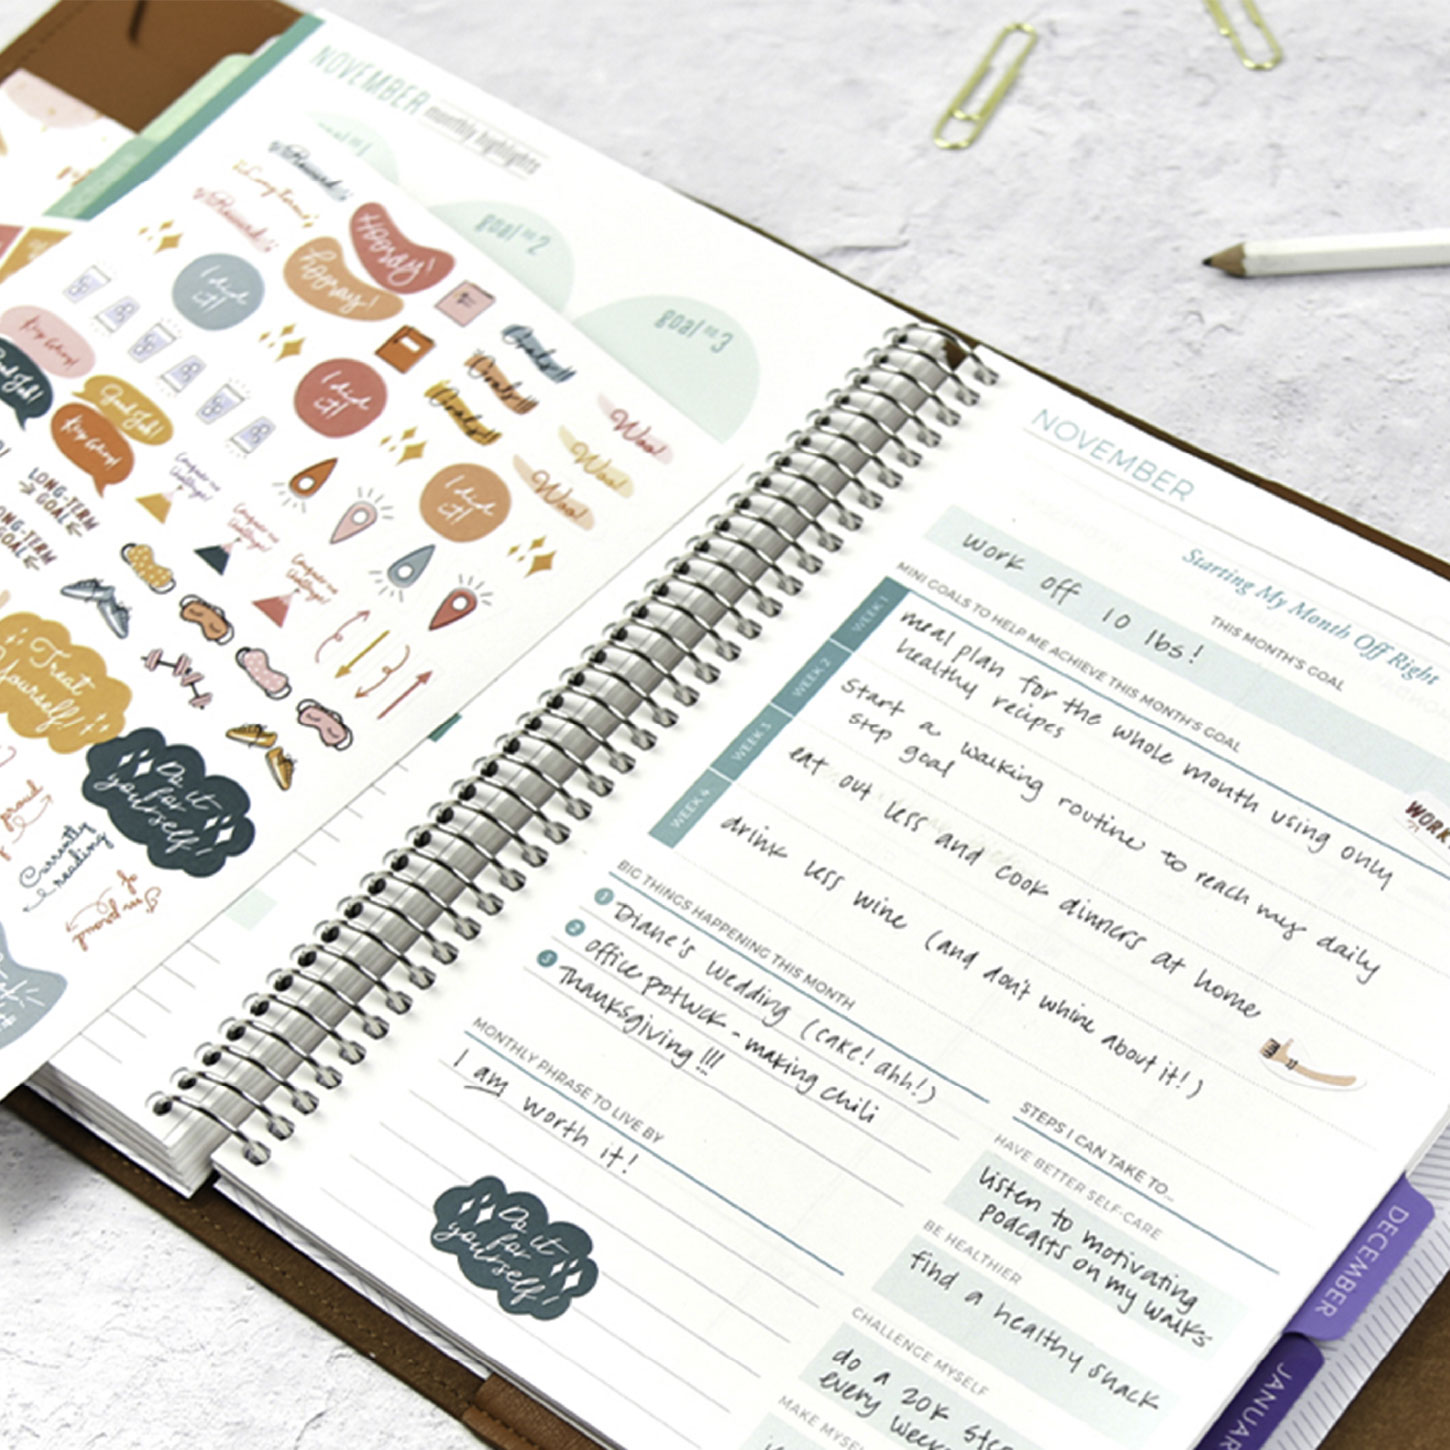 NOVEMBER
monthly highlights
goal no 2
goal no 3
Hooray!
hooray!
I did it!
I did it!
I did it!
Goals!!
Goals!!
Goals!!
Woo!
Woo!
Woo!
Keep Going!
Good Job!
Keep Going!
LONG-TERM
GOAL
LONG-TERM
GOAL
Treat
Yourself!
Do it
for
yourself!
Currently
reading
I'm proud of
NOVEMBER
Starting My Month Off Right
THIS MONTH'S GOAL
work off 10 lbs!
MINI GOALS TO HELP ME ACHIEVE THIS MONTH'S GOAL
WEEK 1
meal plan for the whole month using only
healthy recipes
WEEK 2
start a walking routine to reach my daily
step goal
WEEK 3
eat out less and cook dinners at home
WEEK 4
drink less wine (and don't whine about it!)
BIG THINGS HAPPENING THIS MONTH
1 Diane's wedding (cake! ahh!)
2 office potluck - making chili
3 Thanksgiving!!!
MONTHLY PHRASE TO LIVE BY
I am worth it!
Do it
for
yourself!
STEPS I CAN TAKE TO...
HAVE BETTER SELF-CARE
listen to motivating
podcasts on my walks
BE HEALTHIER
find a healthy snack
CHALLENGE MYSELF
do a 20K
every
DECEMBER